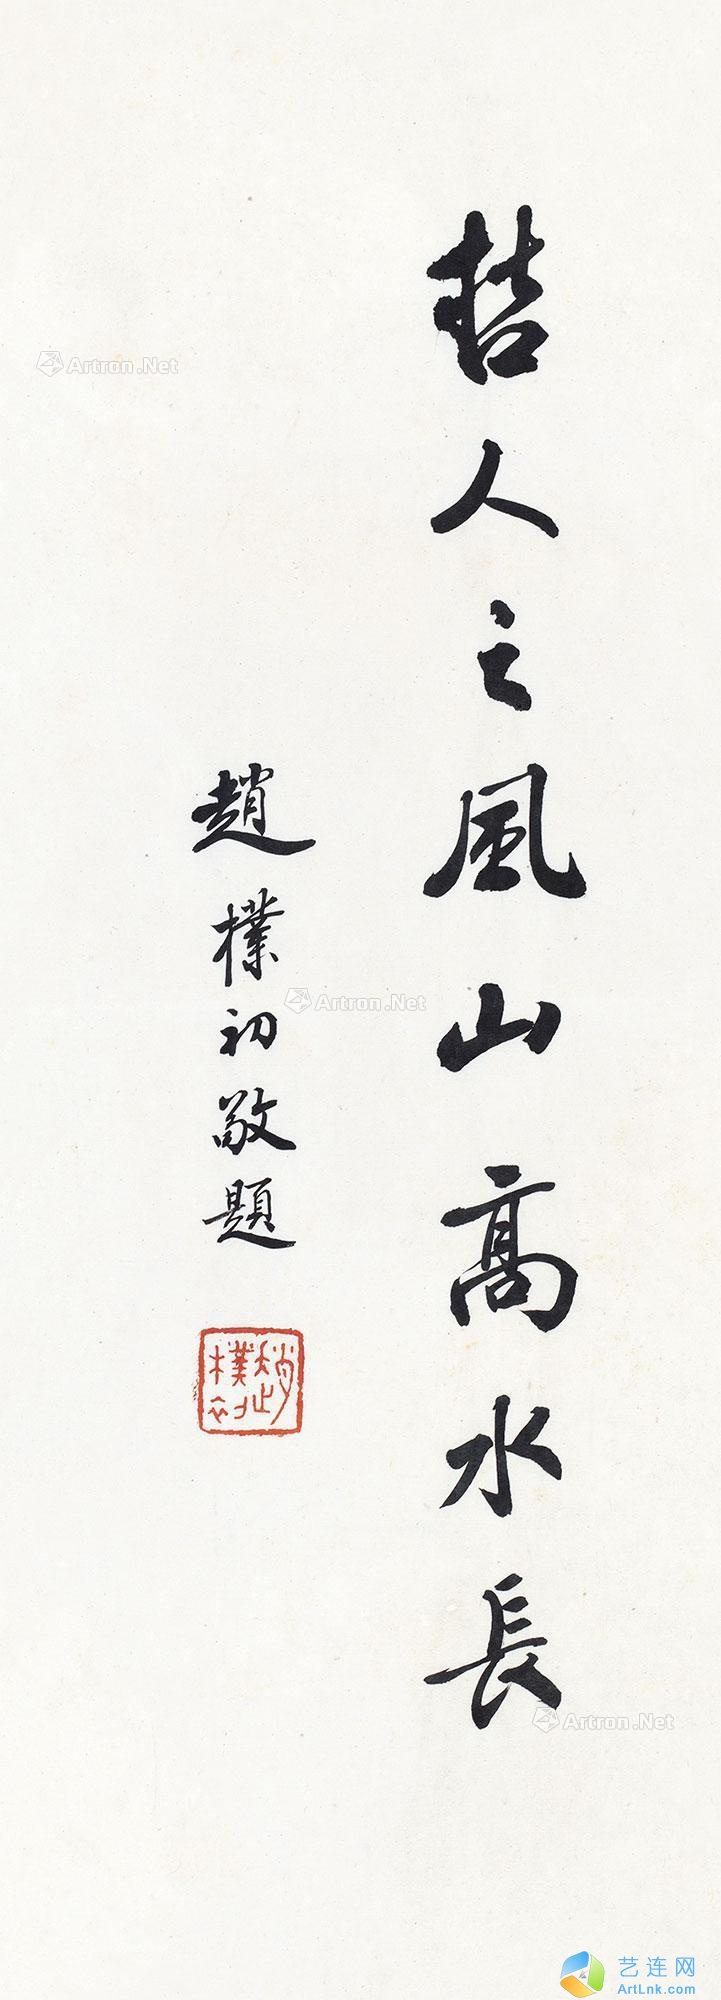 哲人之風山高水長
趙樸初敬題
趙樸初
Artron.Net
Artron.Net
Artron.Net
艺连网
ArtLnk.com